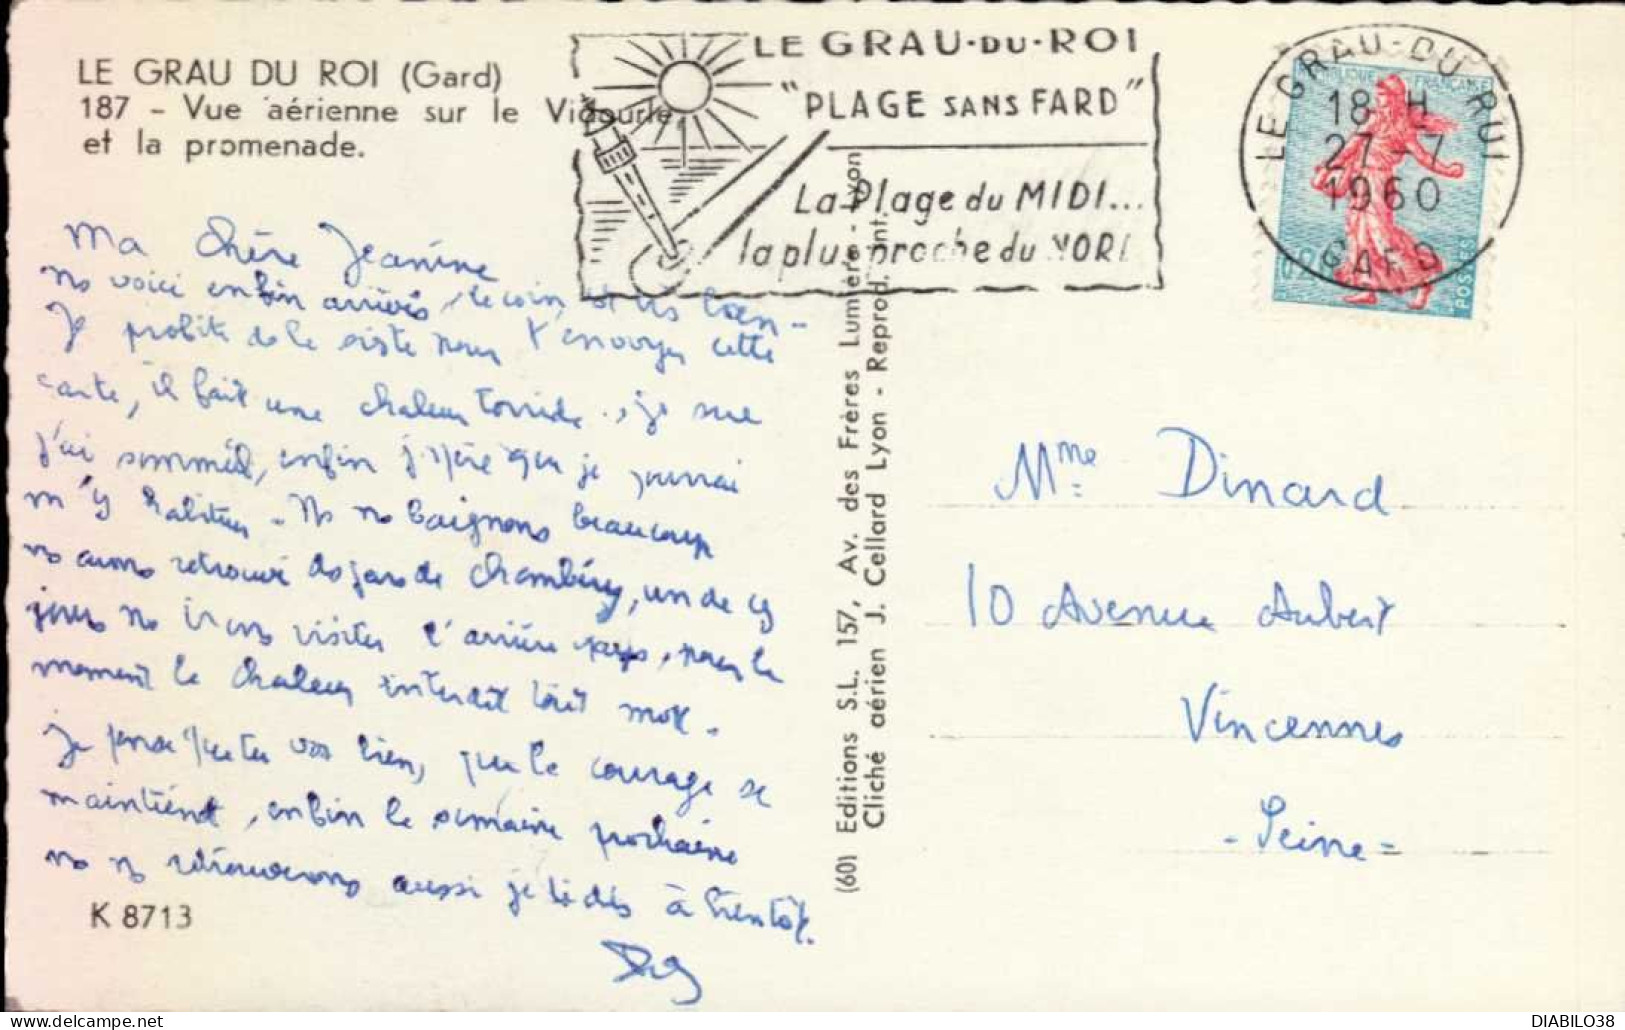 LE GRAU DU ROI (Gard)
187 - Vue aérienne sur le Vidourle
et la promenade.
LE GRAU-DU-ROI
"PLAGE SANS FARD"
La Plage du MIDI...
la plus proche du NORD
LE GRAU-DU-ROI
18 H
27-7
1960
GARD
RÉPUBLIQUE FRANÇAISE
POSTES
Ma chère Jeanine
ns voici enfin arrivés, le coin est très bien -
Je profite de la sieste pour t'envoyer cette
carte, il fait une chaleur torride, je sue
j'ai sommeil, enfin j'espère que je pourrai
m'y habituer - Ns ns baignons beaucoup
ns avons retrouvé des gars de Chambéry, un de ces
jours ns irons visiter l'arrière pays, pour le
moment la chaleur interdit tout
je pense que tu vas bien, que le courage se
maintient, enfin la semaine prochaine
ns ns retrouverons aussi je te dis à bientôt.
K 8713
(60) Editions S.L. 157, Av. des Frères Lumière - Lyon
Cliché aérien J. Cellard Lyon - Reprod. int.
Mme Dinard
10 Avenue Aubert
Vincennes
- Seine -
DIABILO38